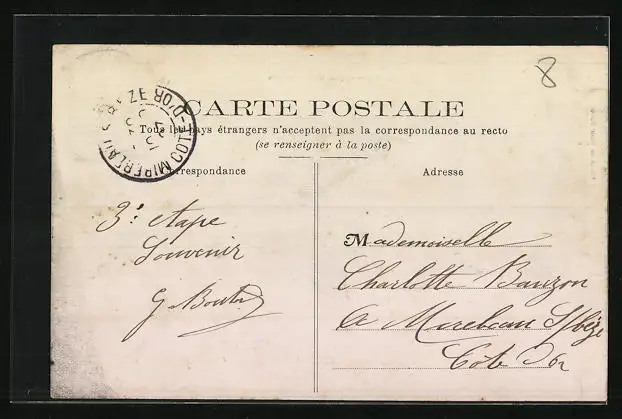 8
CARTE POSTALE
Tous les pays étrangers n'acceptent pas la correspondance au recto
(se renseigner à la poste)
MIREBEAU S BEZE
COTE-D'OR
Correspondance
Adresse
3e étape
Souvenir
G
Mademoiselle
Charlotte Bauzon
à Mirebeau S/bèze
Côte D'or